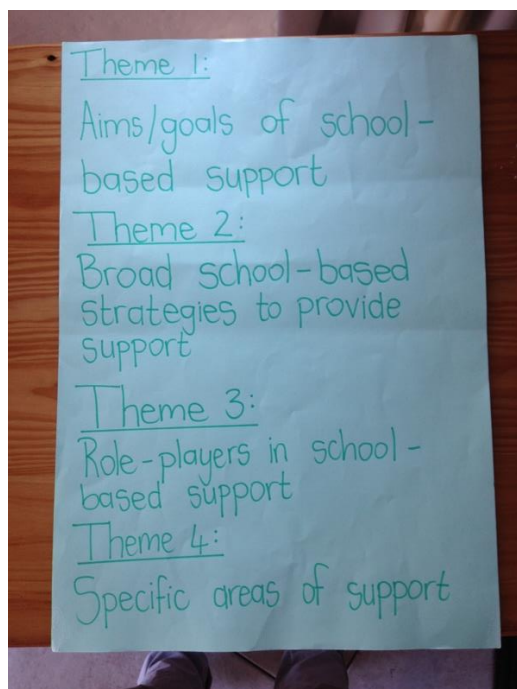 Theme 1:
Aims/goals of school-
based support
Theme 2:
Broad school-based
strategies to provide
support
Theme 3:
Role-players in school-
based support
Theme 4:
Specific areas of support